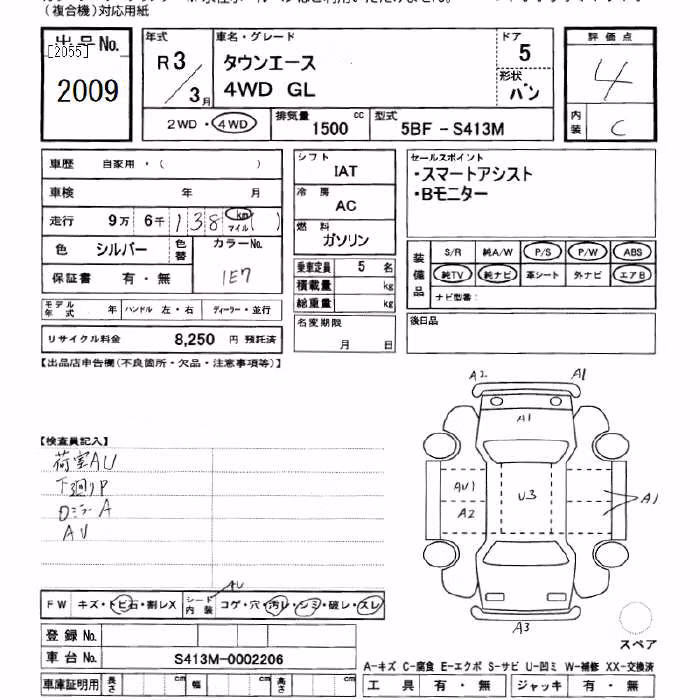 (複合機)対応用紙
出品No.
[2055]
2009
年式
R3/3月
車名・グレード
タウンエース
4WD GL
ドア
5
形状
バン
評価点
4
内装
C
2WD・4WD
排気量
1500 cc
型式
5BF-S413M
車歴 自家用・( )
車検 年 月
走行 9万 6千 138 km マイル ( )
色 シルバー 色替 カラーNo. 1E7
保証書 有・無
モデル年式 年 ハンドル 左・右 ディーラー・並行
リサイクル料金 8,250 円 預託済
シフト
IAT
冷房
AC
燃料
ガソリン
乗車定員 5 名
積載量 kg
総重量 kg
名変期限
月 日
セールスポイント
・スマートアシスト
・Bモニター
装備品
S/R 純A/W P/S P/W ABS
純TV 純ナビ 革シート 外ナビ エアB
ナビ型番:
後日品
【出品店申告欄(不良箇所・欠品・注意事項等)】
【検査員記入】
荷室AU
下廻りP
ロミラーA
AU
A2 A1
A1
AU1
A2
U3
A1
A3
スペア
FW キズ・トビ石・割レX シート内装 コゲ・穴・汚レ・シミ・破レ・スレ
AU
登録No.
車台No. S413M-0002206
車庫証明用 長さ cm 幅 cm 高さ cm
A-キズ C-腐食 E-エクボ S-サビ U-凹ミ W-補修 XX-交換済
工具 有・無 ジャッキ 有・無